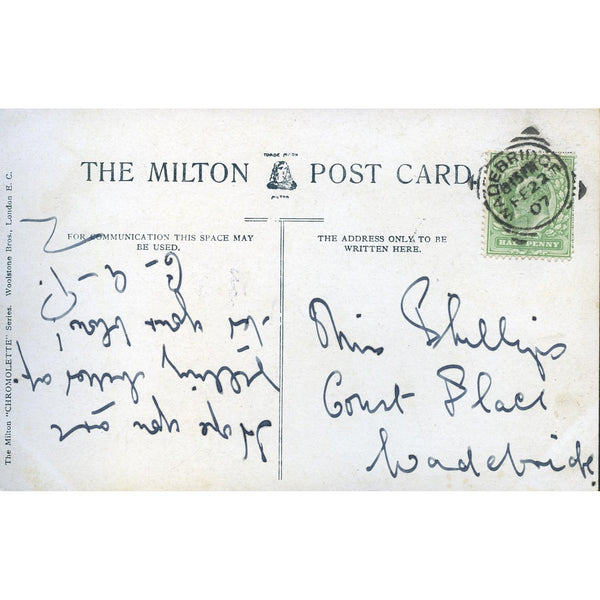 THE MILTON POST CARD
TRADE MARK
MILTON
FOR COMMUNICATION THIS SPACE MAY
BE USED.
THE ADDRESS ONLY TO BE
WRITTEN HERE.
WADEBRIDGE
FE 22
07
HALFPENNY
The Milton "CHROMOLETTE" Series. Woolstone Bros., London E.C.
Hope you are
feeling better
for your blow,
Miss Phillips
Court Place
Wadebridge.